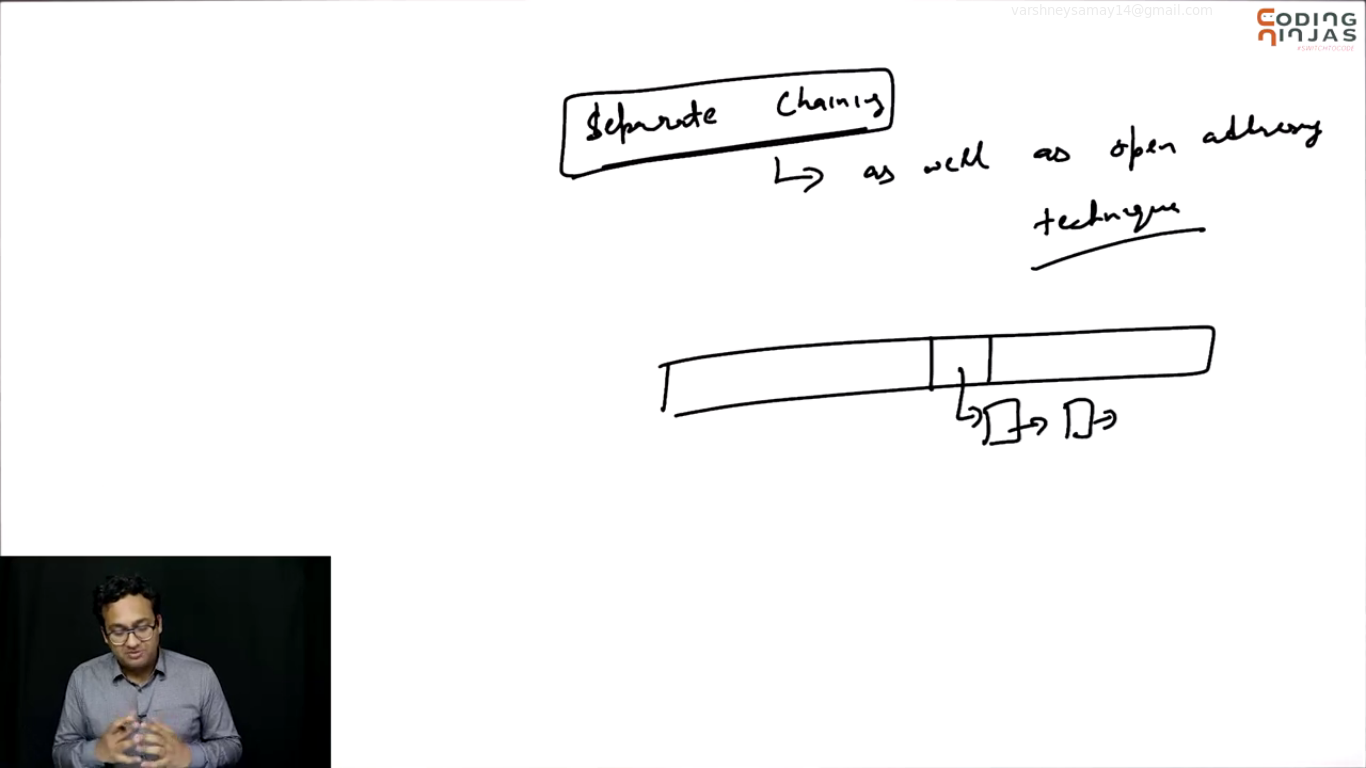 varshneysamay14@gmail.com
CODING
NINJAS
#SWITCHTOCODE
Separate Chaining
as well as open
technique